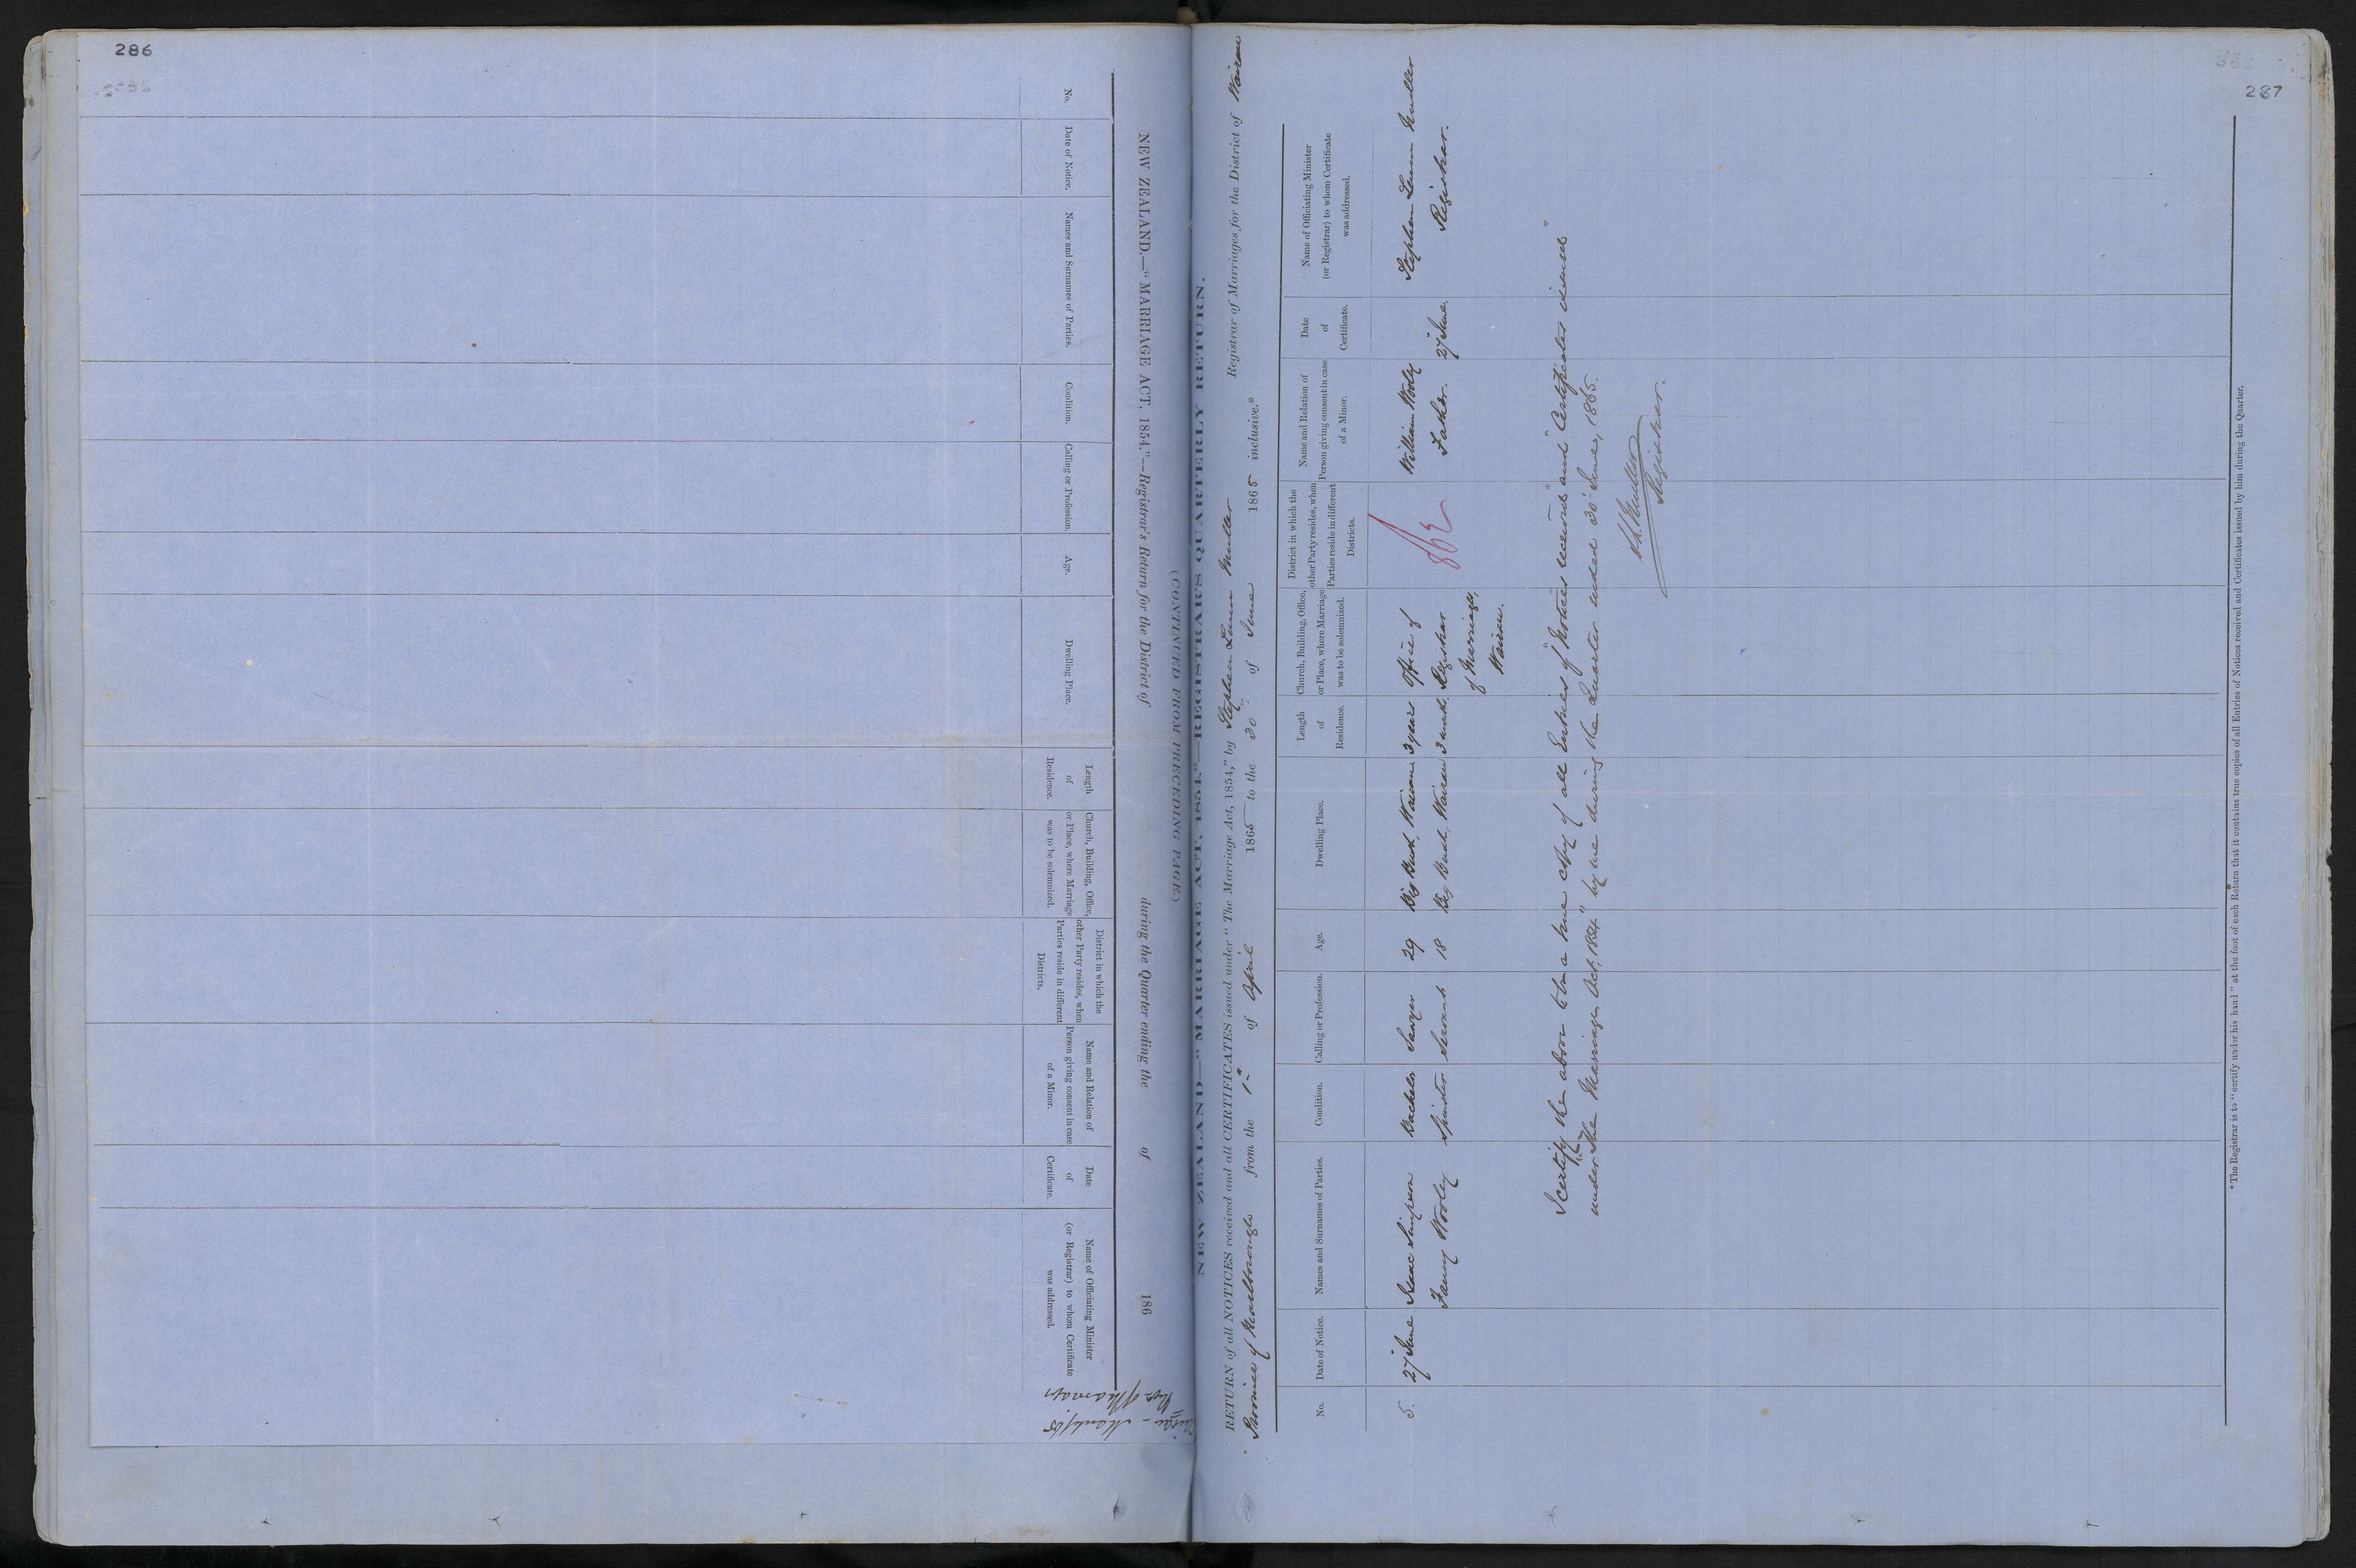 286
NEW ZEALAND.—"MARRIAGE ACT, 1854."—Registrar's Return for the District of during the Quarter ending the of 186
(CONTINUED FROM PRECEDING PAGE.)
No.
Date of Notice.
Names and Surnames of Parties.
Condition.
Calling or Profession.
Age.
Dwelling Place.
Length
of
Residence.
Church, Building, Office,
or Place, where Marriage
was to be solemnized.
District in which the
other Party resides, when
Parties reside in different
Districts.
Name and Relation of
Person giving consent in case
of a Minor.
Date
of
Certificate.
Name of Officiating Minister
(or Registrar) to whom Certificate
was addressed.
287
NEW ZEALAND.—"MARRIAGE ACT, 1854."—REGISTRAR'S QUARTERLY RETURN.
RETURN of all NOTICES received and all CERTIFICATES issued under "The Marriage Act, 1854," by Stephen Lunn Muller Registrar of Marriages for the District of Wairau
Province of Marlborough from the 1st of April 1865 to the 30 of June 1865 inclusive.*
No.
Date of Notice.
Names and Surnames of Parties.
Condition.
Calling or Profession.
Age.
Dwelling Place.
Length
of
Residence.
Church, Building, Office,
or Place, where Marriage
was to be solemnized.
District in which the
other Party resides, when
Parties reside in different
Districts.
Name and Relation of
Person giving consent in case
of a Minor.
Date
of
Certificate.
Name of Officiating Minister
(or Registrar) to whom Certificate
was addressed.
5. 27 June Isaac Simpson Bachelor Sawyer 29 Big Bush, Wairau 3 years Office of William Wooley Stephen Lunn Muller
Fanny Wooley Spinster Servant 18 Big Bush, Wairau Registrar Father. 27 June. Registrar.
of Marriages,
Wairau.
I certify the above to be a true copy of all Entries of "Notices received" and "Certificates issued"
under "The Marriage Act, 1854" by me during the Quarter ended 30 June, 1865.
S.L. Muller
Registrar.
* The Registrar is to "certify under his hand" at the foot of each Return that it contains true copies of all Entries of Notices received and Certificates issued by him during the Quarter.